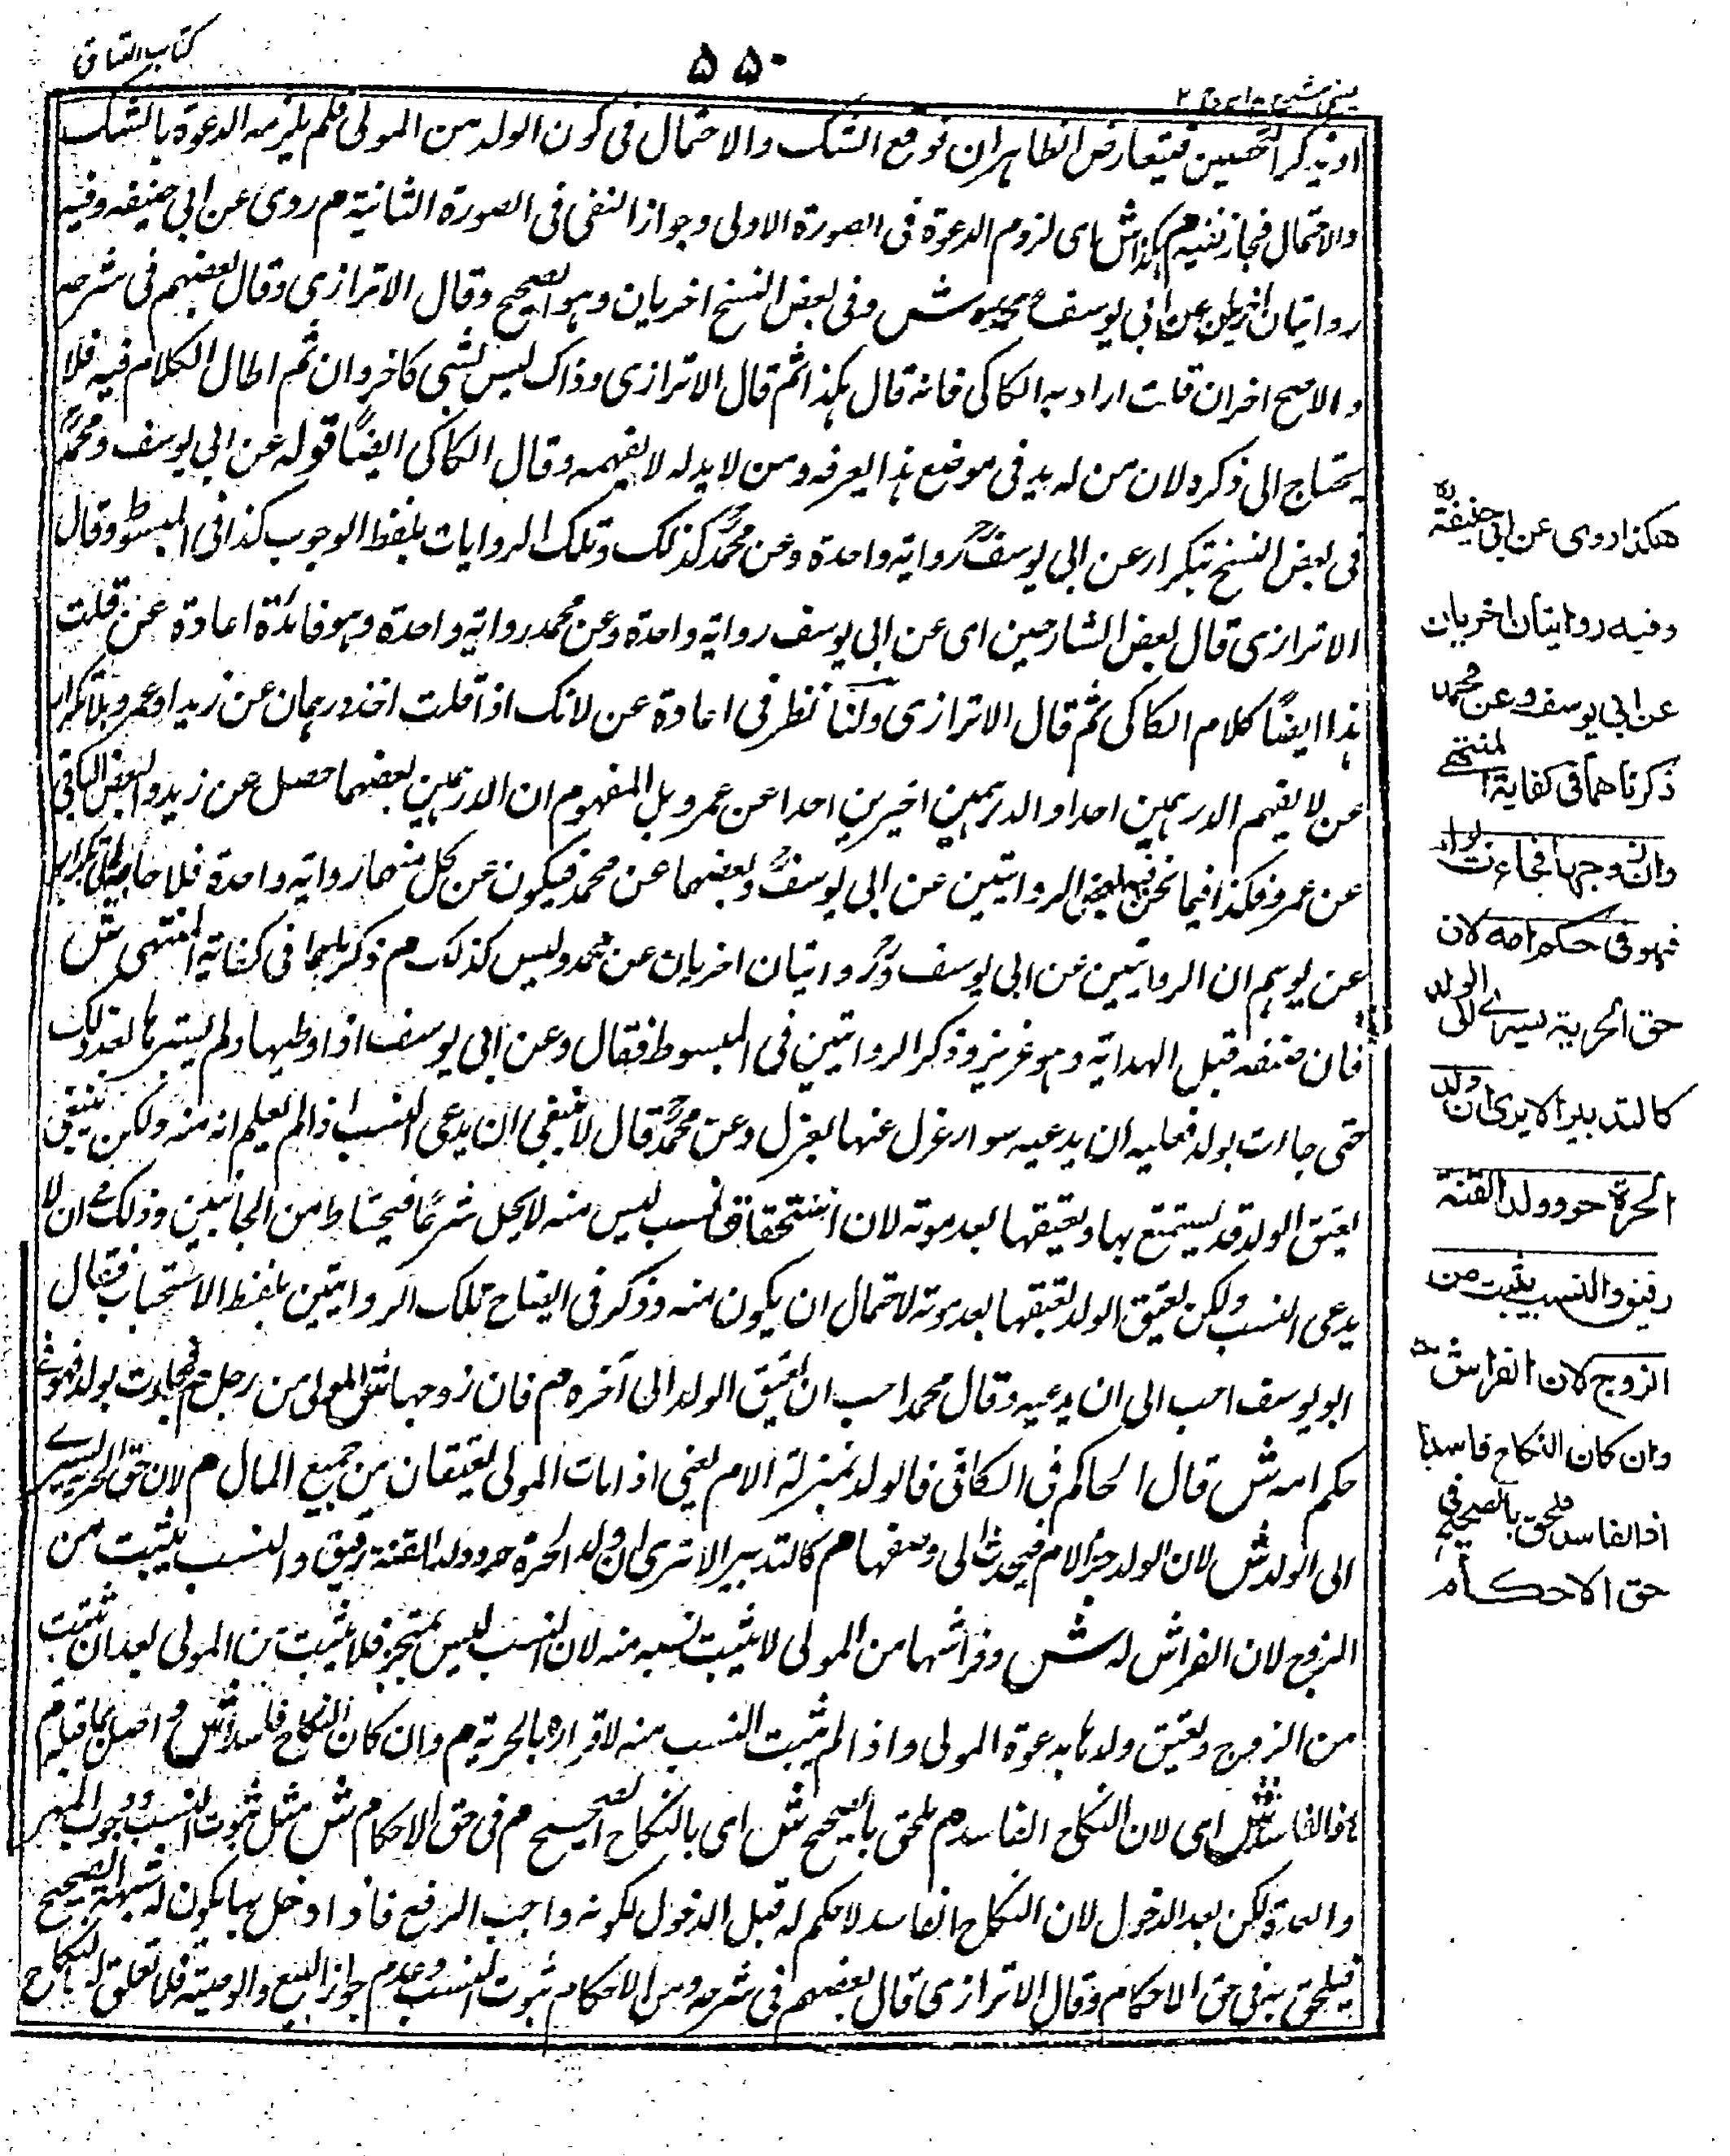 كتاب العتاق
٥٥٠
عينى شرح هداية ج ٢
او تذكر التحصين فيتعارض الظاهران فوقع الشك والاحتمال فى كون الولد من المولى فلم يلزمه الدعوة بالشك
والاحتمال فجاز نفيه م هكذا ش اى لزوم الدعوة فى الصورة الاولى وجواز النفى فى الصورة الثانية م روى عن ابى حنيفه وفيه
روايتان اخريان عن ابى يوسف و محمد ش وفى بعض النسخ اخريان وهو الصحيح وقال الاترازى وقال بعضهم فى شرحه
والاصح اخران قلت اراد به الكاكى فانه قال هكذا ثم قال الاترازى وذاك ليس بشى كاخروان ثم اطال الكلام فيه فلا
يحتاج الى ذكره لان من له يد فى موضع هذا يعرفه ومن لا يد له لا يفهمه وقال الكاكى ايضًا قوله عن ابى يوسف و محمدؒ
فى بعض النسخ بتكرار عن ابى يوسفؒ رواية واحدة وعن محمدؒ كذلك وتلك الروايات بلفظ الوجوب كذا فى المبسوط وقال
الاترازى قال بعض الشارحين اى عن ابى يوسف رواية واحدة وعن محمد رواية واحدة وهو فائدة اعادة عن قلت
هذا ايضًا كلام الكاكى ثم قال الاترازى ولنا نظر فى اعادة عن لانك اذا قلت اخذ درهمان عن زيد او عمرو بلا تكرار
عن لا يفهم الدرهمين احدا والدرهمين اخيرين احدا عن عمرو بل المفهوم ان الدرهمين بعضهما حصل عن زيد والبعض الباقى
عن عمرو فكذا فيما نحن فيه بعض الروايتين عن ابى يوسفؒ وبعضهما عن محمد فيكون عن كل منهما رواية واحدة فلا حاجة الى تكرار
عن يوهم ان الروايتين عن ابى يوسف و روايتان اخريان عن محمد وليس كذلك م ذكرناهما فى كفاية المنتهى ش
فان مصنفه قبل الهداية وهو عزيز وذكر الروايتين فى المبسوط فقال وعن ابى يوسف اذا وطيها ولم يستبرها بعد ذلك
حتى جاءت بولد فعليه ان يدعيه سواء عزل عنها او لم يعزل وعن محمدؒ قال لا ينبغى ان يدعى النسب اذا لم يعلم انه منه ولكن ينبغى
يعتق الولد قد يستمتع بها ويعتقها بعد موته لان استحقاق نسب ليس منه لا يحل شرعًا فيحتاط من الجانبين وذلك ان لا
يدعى النسب ولكن يعتق الولد ويعتقها بعد موته لاحتمال ان يكون منه وذكر فى الايضاح تلك الروايتين بلفظ الاستحباب فقال
ابو يوسف احب الى ان يدعيه وقال محمد احب ان يعتق الولد الى آخره م فان زوجها ش اى المولى من رجل م فجاءت بولد فهو فى
حكم امه ش قال الحاكم فى الكافى فالولد بمنزلة الام يعنى اذا مات المولى يعتقان من جميع المال م لان حق الحرية يسرى
الى الولد ش لان الولد جزء الام فيحدث الى وصفها م كالتدبير الا ترى ان ولد الحرة حر وولد القنة رقيق والنسب يثبت من
الزوج لان الفراش له ش وفراشها من المولى لا يثبت نسبه منه لان النسب ليس بمتجزء فلا يثبت من المولى بعد ان يثبت
من الزوج ويعتق ولدها بدعوة المولى واذا لم يثبت النسب منه لاقراره بالحرية م وان كان النكاح فاسدا ش واصل بما قبله م
اذ الفاسد ش اى لان النكاح الفاسد م ملحق بالصحيح ش اى بالنكاح الصحيح م فى حق الاحكام ش مثل ثبوت النسب ووجوب المهر
والعدة ولكن بعد الدخول لان النكاح الفاسد لا حكم له قبل الدخول لكونه واجب الرفع فاذا دخل بها يكون له شبهة بالصحيح
فيلحق به فى حق الاحكام وقال الاترازى قال بعضهم فى شرحه ومن الاحكام ثبوت النسب وعدم جواز البيع والوصية فلا تعلق له بالنكاح
هكذا روى عن ابى حنيفةؒ
وفيه روايتان اخريان
عن ابى يوسف وعن محمد
ذكرناهما فى كفاية المنتهى
وان زوجها فجاءت بولد
فهو فى حكم امه لان
حق الحرية يسرے الى الولد
كالتدبير الا يرى ان ولد
الحرة حر وولد القنة
رقيق والنسب يثبت من
الزوج لان الفراش له
وان كان النكاح فاسدا
اذ الفاسد ملحق بالصحيح فى
حق الاحكام